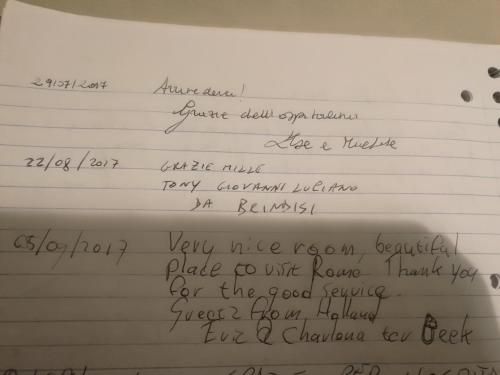 29/07/2017 Arrivederci!
Grazie dell'ospitalità
Ilse e
22/08/2017 GRAZIE MILLE
TONY GIOVANNI LUCIANO
DA BRINDISI
03/09/2017 Very nice room, beautiful
place to visit Rome Thank you
for the good service.
Guests from Holland
Eric & ter Beek